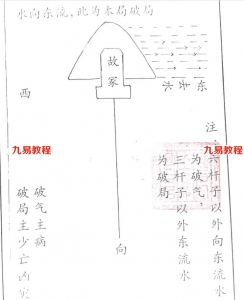 水向东流，此为本局破局
故冢
西
东
水
水
注：六杆子以外向东流水
为破气，
三杆子以外东流水
为破局
向
破气主病
破局主少亡凶灾
九易教程
www.jiu1688.com
九易教程
www.jiu1688.com